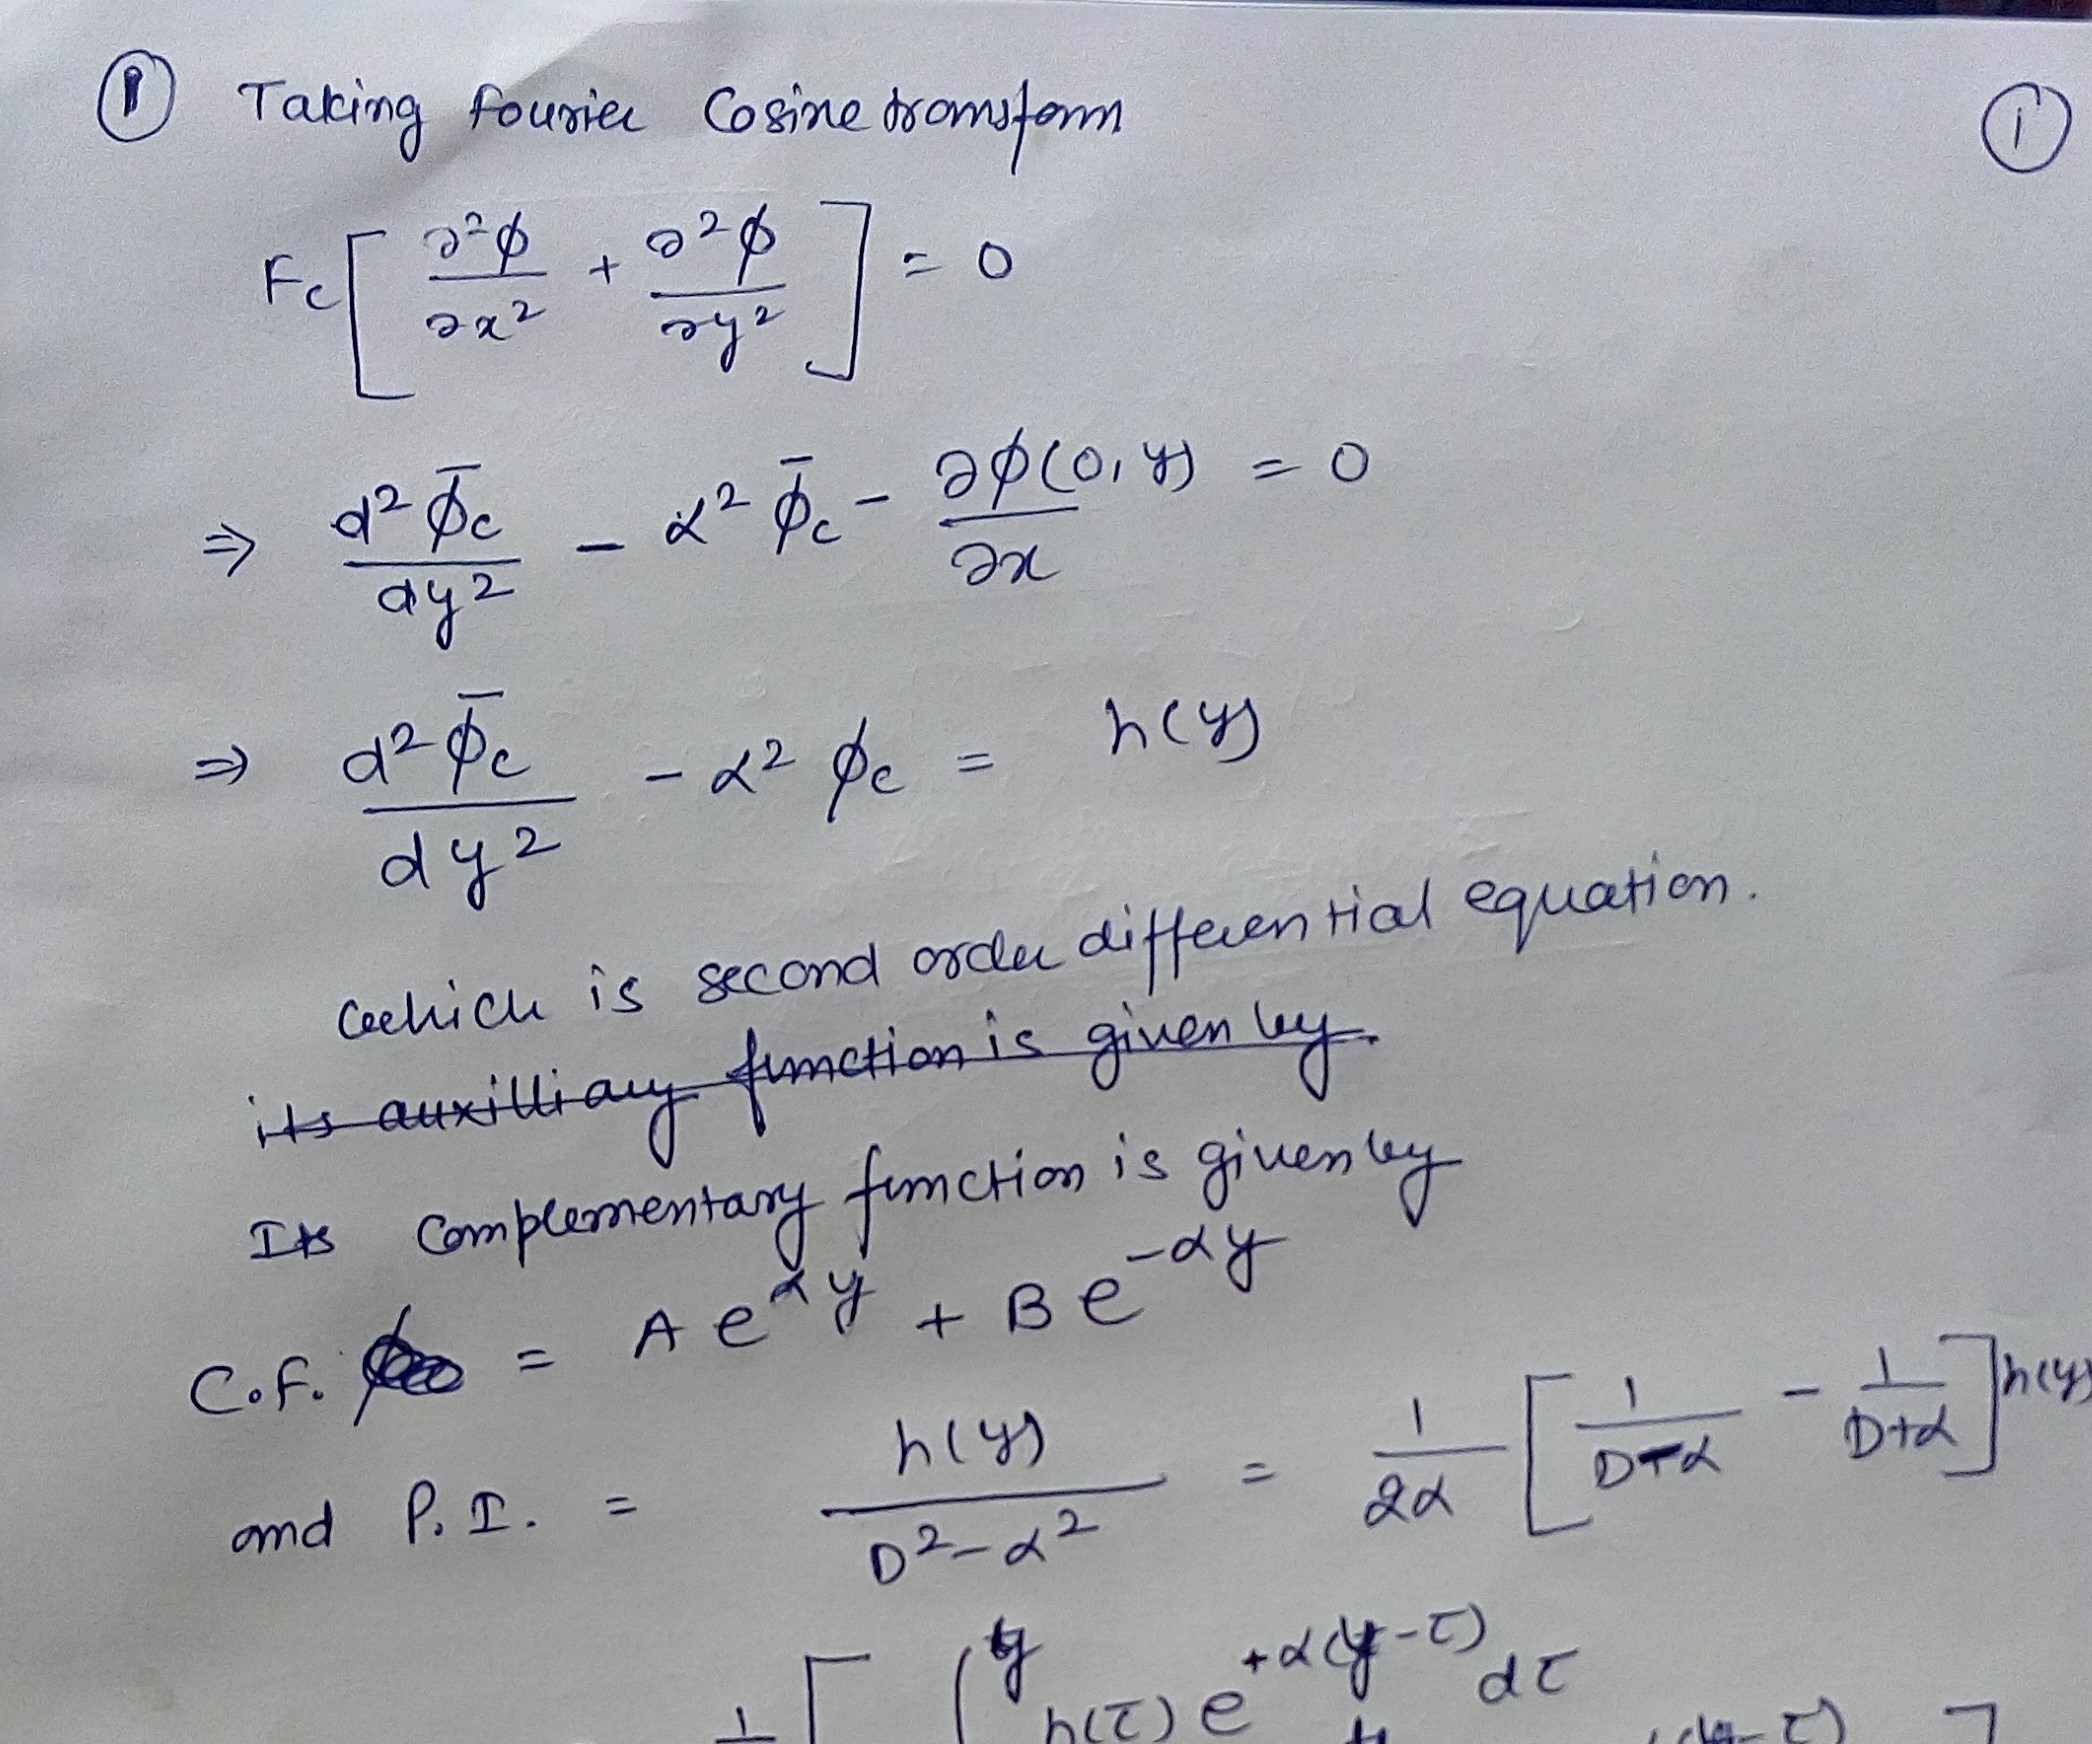 ① Taking fourier Cosine transform ①
Fc [ ∂²ϕ/∂x² + ∂²ϕ/∂y² ] = 0
⇒ d²ϕ̄c/dy² - α² ϕ̄c - ∂ϕ(0,y)/∂x = 0
⇒ d²ϕ̄c/dy² - α² ϕc = h(y)
which is second order differential equation.
its auxilliary function is given by
Its complementary function is given by
C.F. = A e^{αy} + B e^{-αy}
and P.I. = h(y)/(D²-α²) = 1/2α [ 1/(D-α) - 1/(D+α) ] h(y)
1 [ ∫^y h(τ) e^{+α(y-τ)} dτ